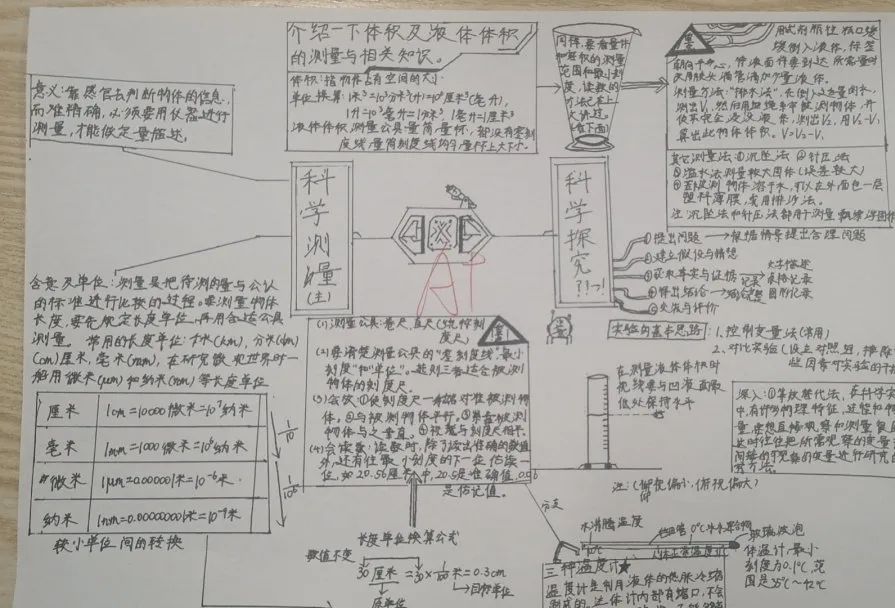 介绍一下体积及液体体积
的测量与相关知识。
体积:指物体占有空间的大小
单位换算:1米³=10³分米³(升)=10⁶厘米³(毫升),
1升=10³毫升=1分米³ 1毫升=1厘米³
液体体积测量公具量筒,量杯,都没有零刻
度线,量筒刻度线均匀,量杯上大下小。
意义:靠感官去判断物体的信息,
而准精确,必须要用仪器进行
测量,才能做定量描述。
同样,要看量杆
和容积的测量
范围和最小刻
度,读数的
方法已在上
大讲过。
(看下面)
重
用试剂瓶
缓倒入液体,待至
滴管滴加少量液体。
测量方法:"排水法",先倒入适量的水,
测出V₁,然后用细绳牵中被测物体,并
使其完全浸没液体,测出V₂,用V₂-V₁
算出此物体体积。V=V₂-V₁
其它测量法:①沉坠法 ②针压法
③溢水法测量较大固体(误差较大)
④若被测物体溶于水,可以在外面包一层
塑料薄膜,或用排沙法。
注:沉坠法和针压法都用于测量飘
科学测量
(上)
科学探究
??→!
A+
①提出问题→根据情景提出合理问题
②建立假设与猜想
③获取事实与证据 记录
文字描述
表格记录
图形记录
④得出结论→
⑤交流与评价
实验的基本思路:1、控制变量法(常用)
2、对比实验(设立对照组,排除
些因素对实验的干
含意及单位:测量是把待测的量与公认
的标准进行比较的过程。要测量物体
长度,要先规定长度单位,再用合适公具
测量。常用的长度单位:米(m),分米(dm)
(cm)厘米,毫米(mm),在研究微观世界时一
般用微米(μm)和纳米(nm)等长度单位
厘米 1cm=10000微米=10⁷纳米
毫米 1mm=1000微米=10⁶纳米
微米 1μm=0.000001米=10⁻⁶米
纳米 1nm=0.000000001米=10⁻⁹米
较小单位间的转换
(1)测量公具:卷尺,直尺(统称刻
度尺)
(2)看清楚测量公具的"零刻度线"最小
刻度"和"单位"。选则三者适合被测
物体的刻度尺。
(3)会放:①使刻度尺一端对准被测物
体。②与被测物体平行。
物体与之垂直。
(4)会读数:读数时,除了读出准确的数值
外,还有往最小刻度的下一位估读一
位,如20.56厘米中,20.5是准确值,0.06
是估记值。
长度单位换算公式
数值不变
30厘米=30×1/100米=0.3cm
原单位
目标单位
在测量液体体积时
视线要与凹液面最
低处保持水平
注:(仰视偏小,俯视偏大)
深入:①等效替代法,在科学实
中,有许多物理特征,过程和物
量,要想直接观察和测量复
此时往往把所需观察的变量
间接的可观察的变量进行研究的
方法。
分支
水沸腾温度
冰水混合物
玻璃液泡
体温计,最小
刻度为0.1℃,范
围是35℃~42℃
三种温度计★
温度计是利用液体的热胀冷缩
制成的。体体计内部有缩口,不会